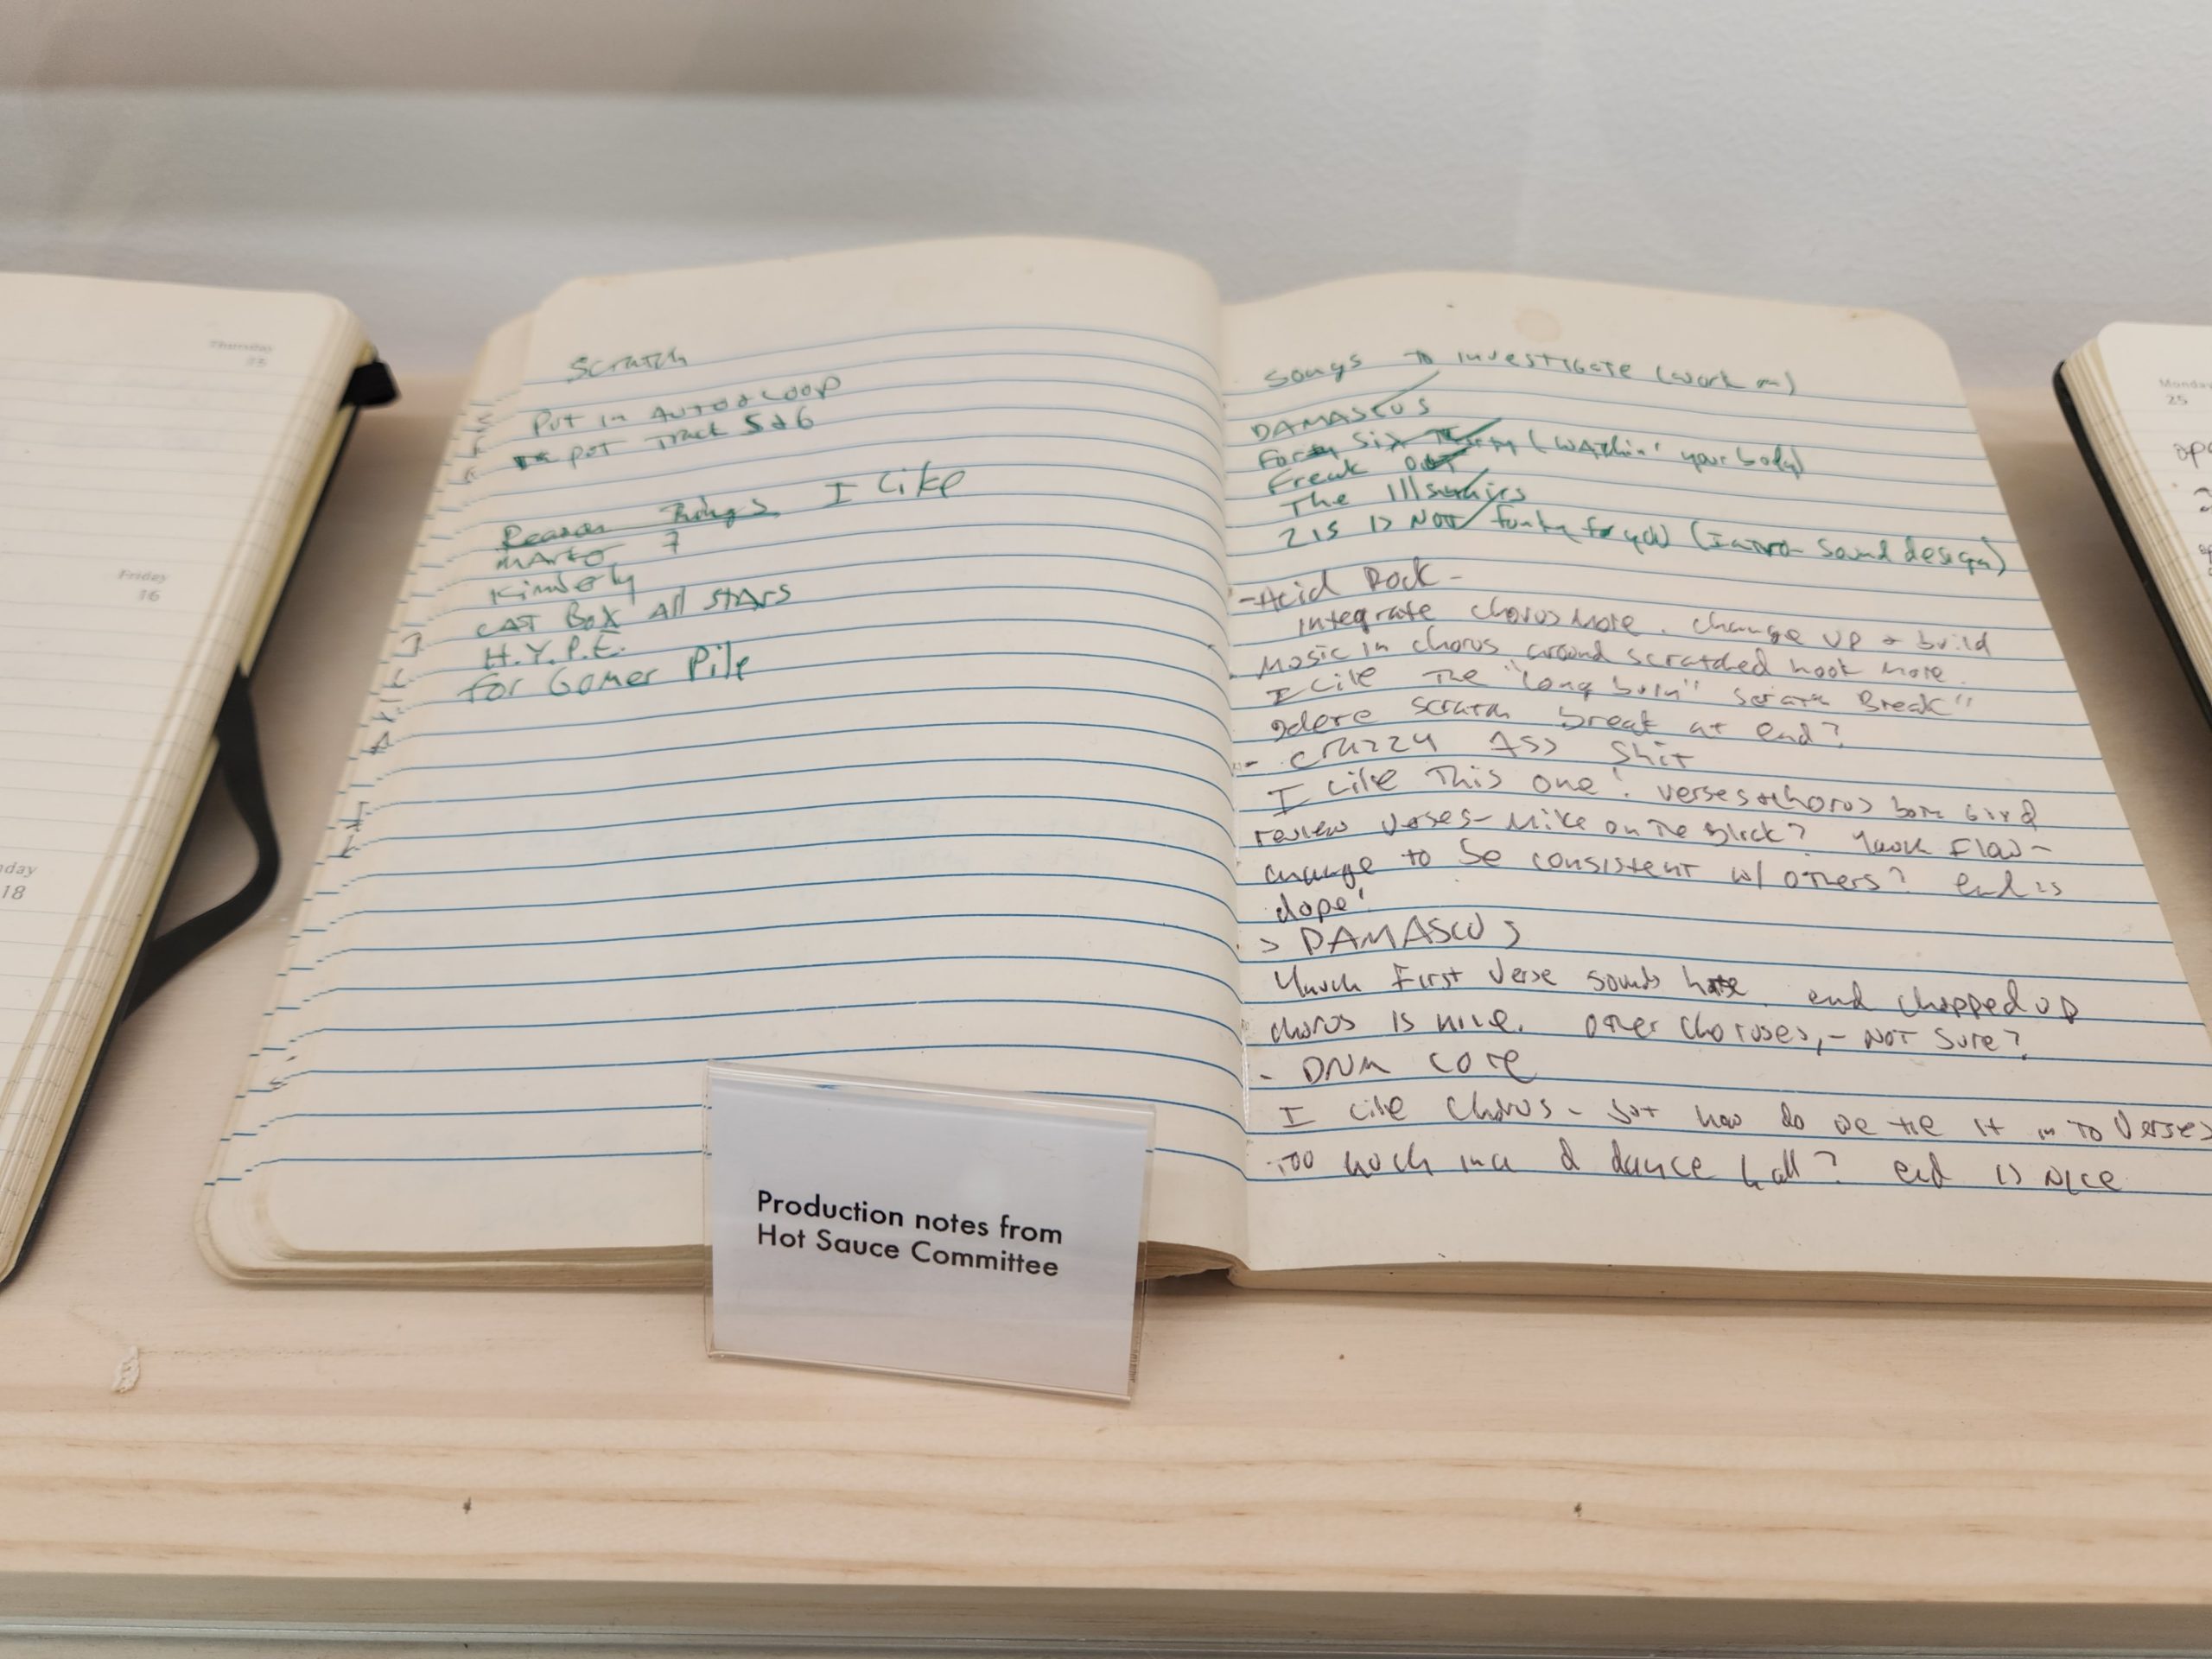 Thursday
Friday
16
18
Scratch
Put in Auto & Loop
Put Track 5 & 6
Reason Things I Like
7
Kimberly
CAT Box All STArs
H.Y.P.E.
for Gomer Pile
Songs to investigate (work on)
DAMASCUS
Six (WAtchin' your body)
Freak out
The
is NOT funky for you (Intro sound design)
-Acid Rock-
integrate chorus more. change up & build
music in chorus around scratched hook more.
I like The "long burn" scratch Break"
scratch break at end?
- crazzy Ass Shit
I like This one! verses & chorus both
review verses- Mike on The Flow-
change to be consistent w/ others? end is
dope!
> DAMASCUS
Yauch First verse sounds end chopped up
chorus is nice. other choruses,- NOT Sure?
- DNA Core
I like chorus - but how do we tie it in To Verses
Too much & dance hall? end is Nice
Production notes from
Hot Sauce Committee
Monday
25